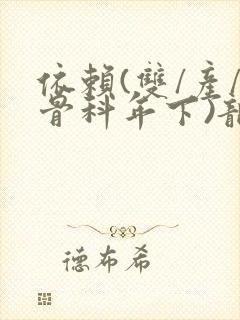 依賴(雙/產/
骨科年下)
德布希